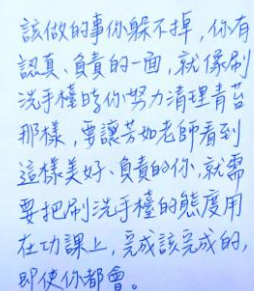 該做的事你躲不掉，你有
認真、負責的一面，就像刷
洗手檯時你努力清理青苔
那樣，要讓芳如老師看到
這樣美好、負責的你，就需
要把刷洗手檯的態度用
在功課上，完成該完成的，
即使你都會。